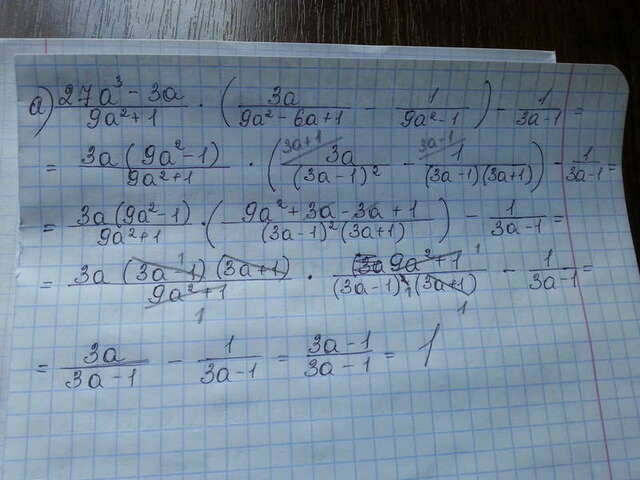 а) 27a³ - 3a / 9a² + 1 · ( 3a / 9a² - 6a + 1 - 1 / 9a² - 1 ) - 1 / 3a - 1 =
= 3a (9a² - 1) / 9a² + 1 · ( 3a+1 3a / (3a - 1)² - 3a-1 1 / (3a - 1)(3a + 1) ) - 1 / 3a - 1 =
= 3a (9a² - 1) / 9a² + 1 · ( 9a² + 3a - 3a + 1 / (3a - 1)² (3a + 1) ) - 1 / 3a - 1 =
= 3a (3a - 1) (3a + 1) / 9a² + 1 · 9a² + 1 / (3a - 1)² (3a + 1) - 1 / 3a - 1 =
= 3a / 3a - 1 - 1 / 3a - 1 = 3a - 1 / 3a - 1 = 1